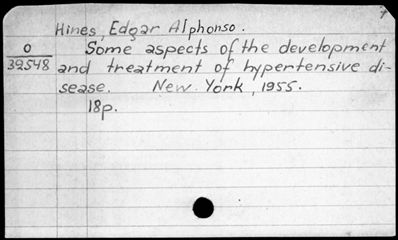 7
Hines, Edgar Alphonso.
O Some aspects of the development
39548 and treatment of hypertensive di-
sease. New York, 1955.
18p.